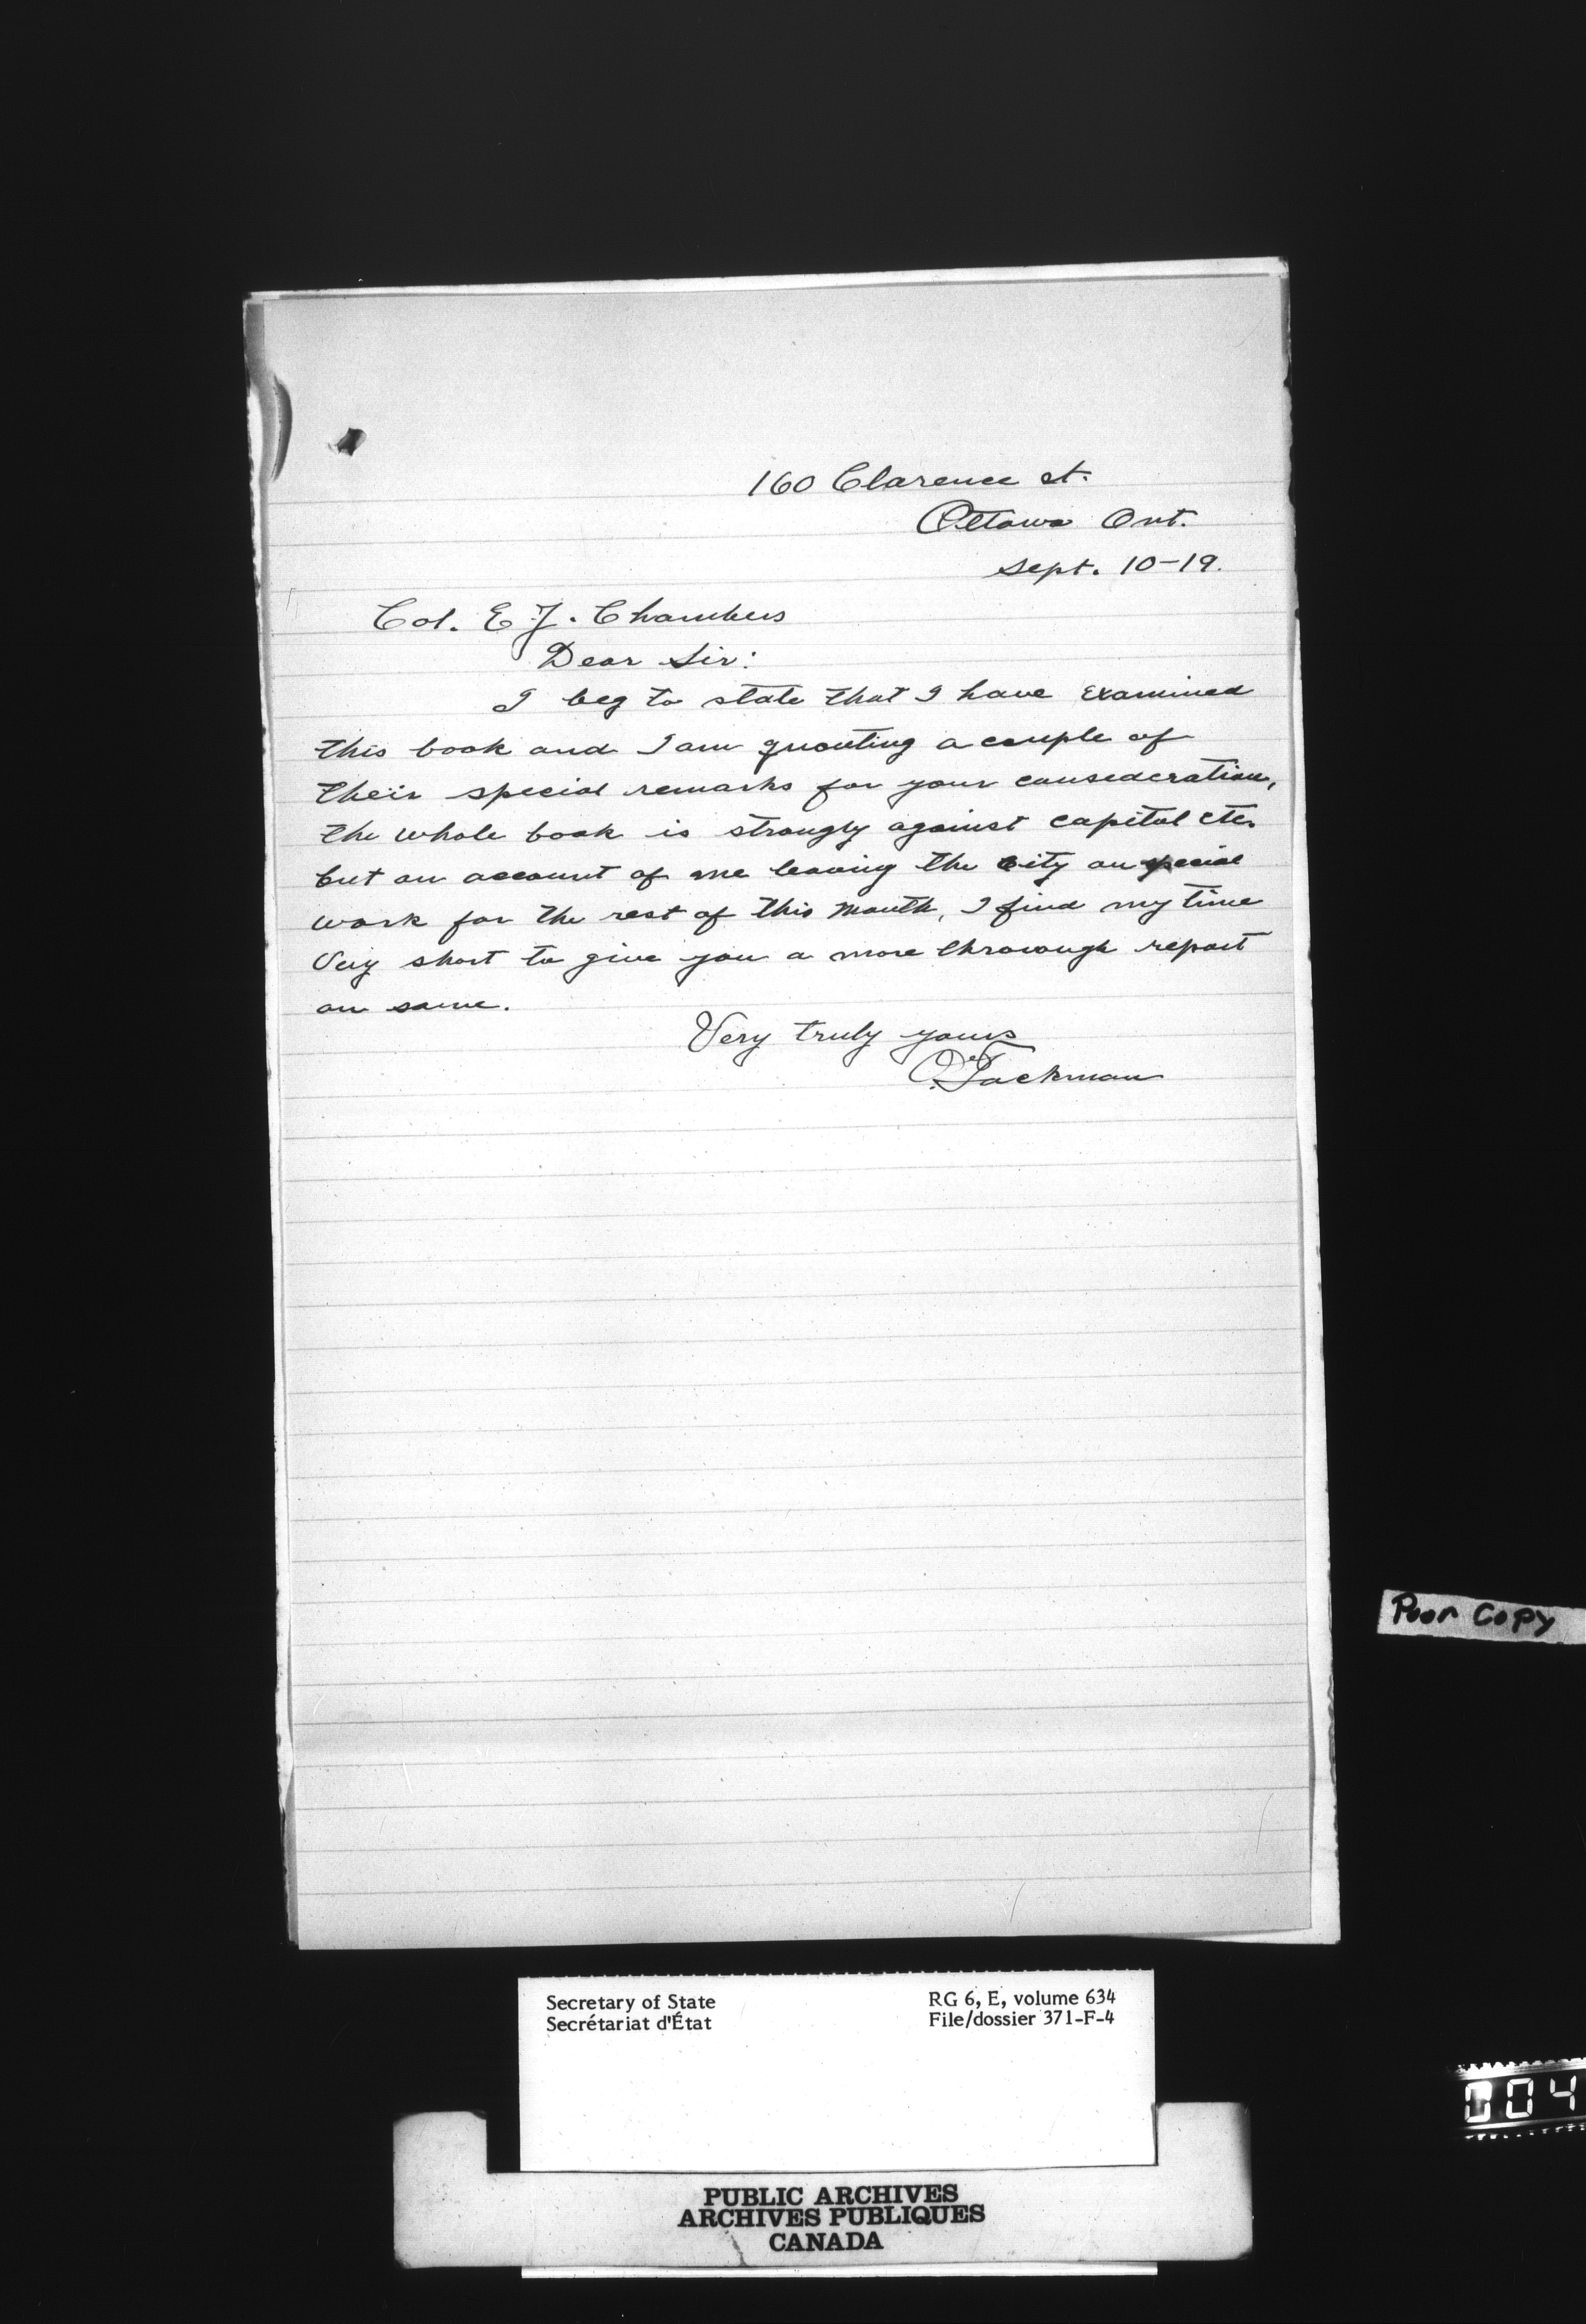 160 Clarence st.
Ottawa Ont.
Sept. 10-19.
Col. E J. Chambers
Dear Sir:
I beg to state that I have examined
this book and I am quouting a couple of
their special remarks for your consederation,
the whole book is strongly against capital etc.
but on account of me leaving the city on special
work for the rest of this month, I find my time
very short to give you a more throrough report
on same.
Very truly yours
Tackman
Poor Copy
Secretary of State
Secrétariat d'État
RG 6, E, volume 634
File/dossier 371-F-4
004
PUBLIC ARCHIVES
ARCHIVES PUBLIQUES
CANADA